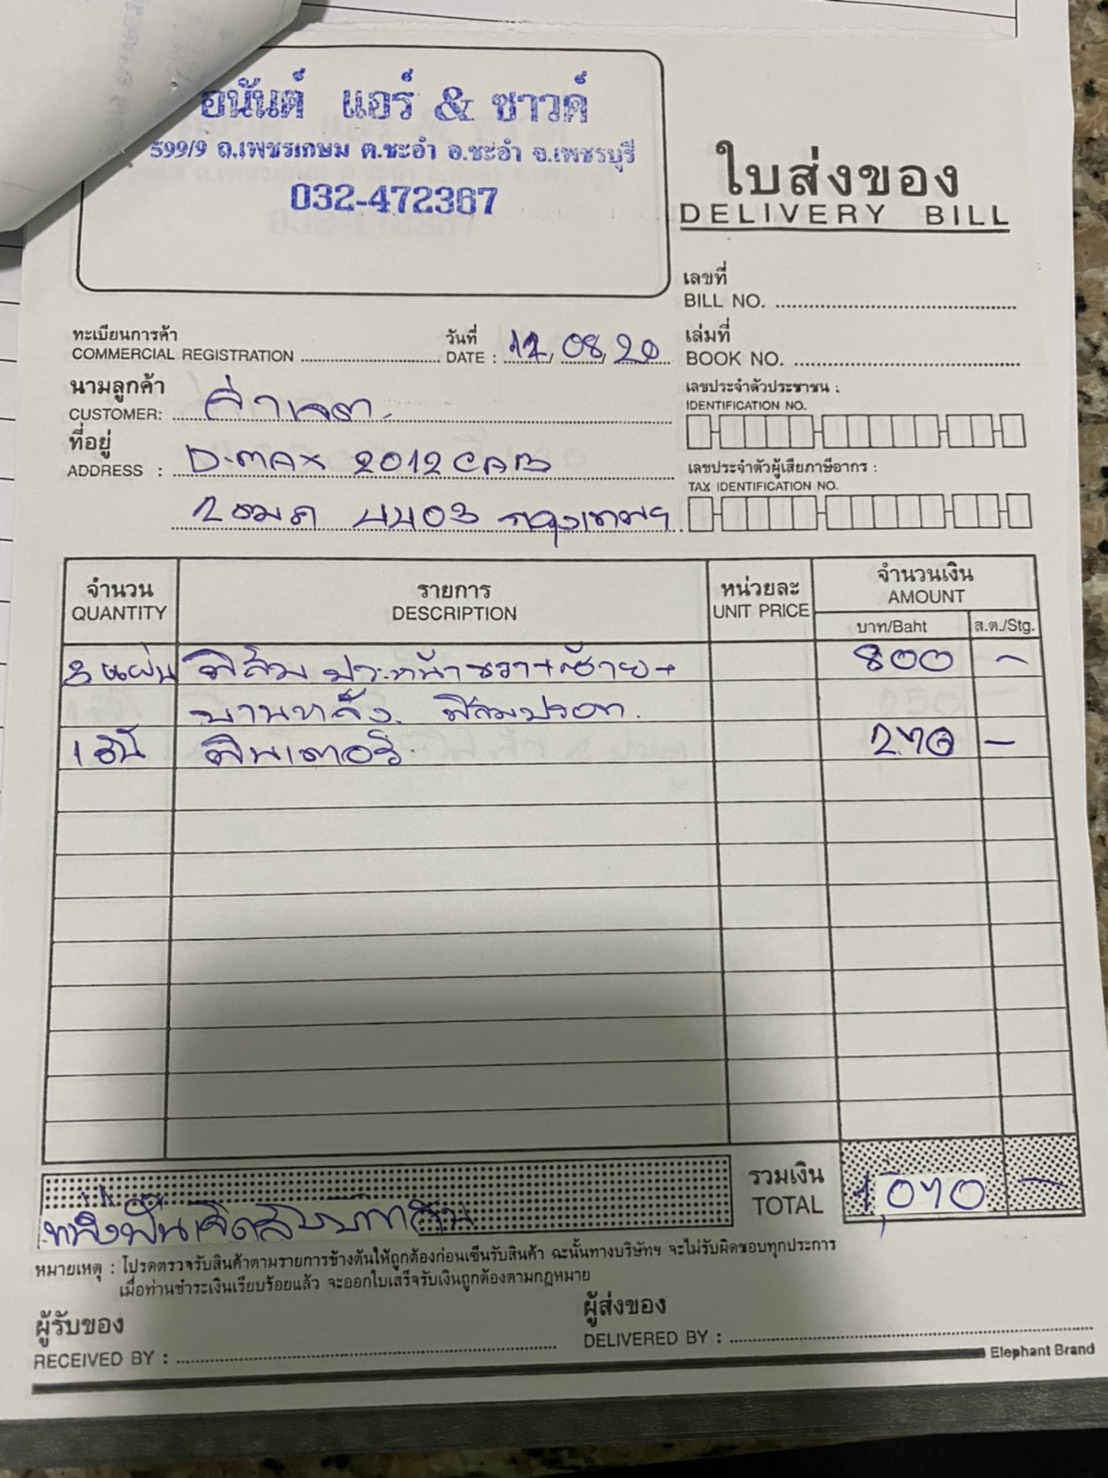 อนันต์ แอร์ & ซาวด์
599/9 ถ.เพชรเกษม ต.ชะอำ อ.ชะอำ จ.เพชรบุรี
032-472367
ใบส่งของ
DELIVERY BILL
เลขที่
BILL NO.
ทะเบียนการค้า
COMMERCIAL REGISTRATION
วันที่
DATE : 12/08/20
เล่มที่
BOOK NO.
นามลูกค้า
CUSTOMER:
เลขประจำตัวประชาชน :
IDENTIFICATION NO.
ที่อยู่
ADDRESS : D-MAX 2012 CAB
เลขประจำตัวผู้เสียภาษีอากร :
TAX IDENTIFICATION NO.
2ฒศ 4403 กรุงเทพฯ
จำนวน รายการ หน่วยละ จำนวนเงิน
QUANTITY DESCRIPTION UNIT PRICE AMOUNT
บาท/Baht ส.ต./Stg.
3 แผ่น ฟิล์ม ประหน้าขวา+ซ้าย+ 800 -
บานหลัง ฟิล์มปรอท.
1 270 -
รวมเงิน
TOTAL 1,070 -
หมายเหตุ : โปรดตรวจรับสินค้าตามรายการข้างต้นให้ถูกต้องก่อนเซ็นรับสินค้า ฉะนั้นทางบริษัทฯ จะไม่รับผิดชอบทุกประการ
เมื่อท่านชำระเงินเรียบร้อยแล้ว จะออกใบเสร็จรับเงินถูกต้องตามกฎหมาย
ผู้รับของ
RECEIVED BY :
ผู้ส่งของ
DELIVERED BY :
Elephant Brand